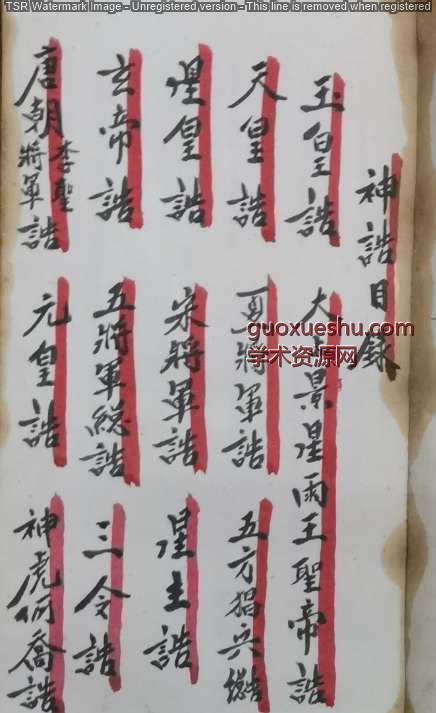 TSR Watermark Image - Unregistered version - This line is removed when registered
神誥目錄
玉皇誥
大景星雨王聖帝誥
天皇誥
將軍誥
五方猖兵總誥
星皇誥
宋將軍誥
星主誥
玄帝誥
五將軍総誥
三令誥
唐朝李聖將軍誥
元皇誥
神虎何喬誥
guoxueshu.com
学术资源网